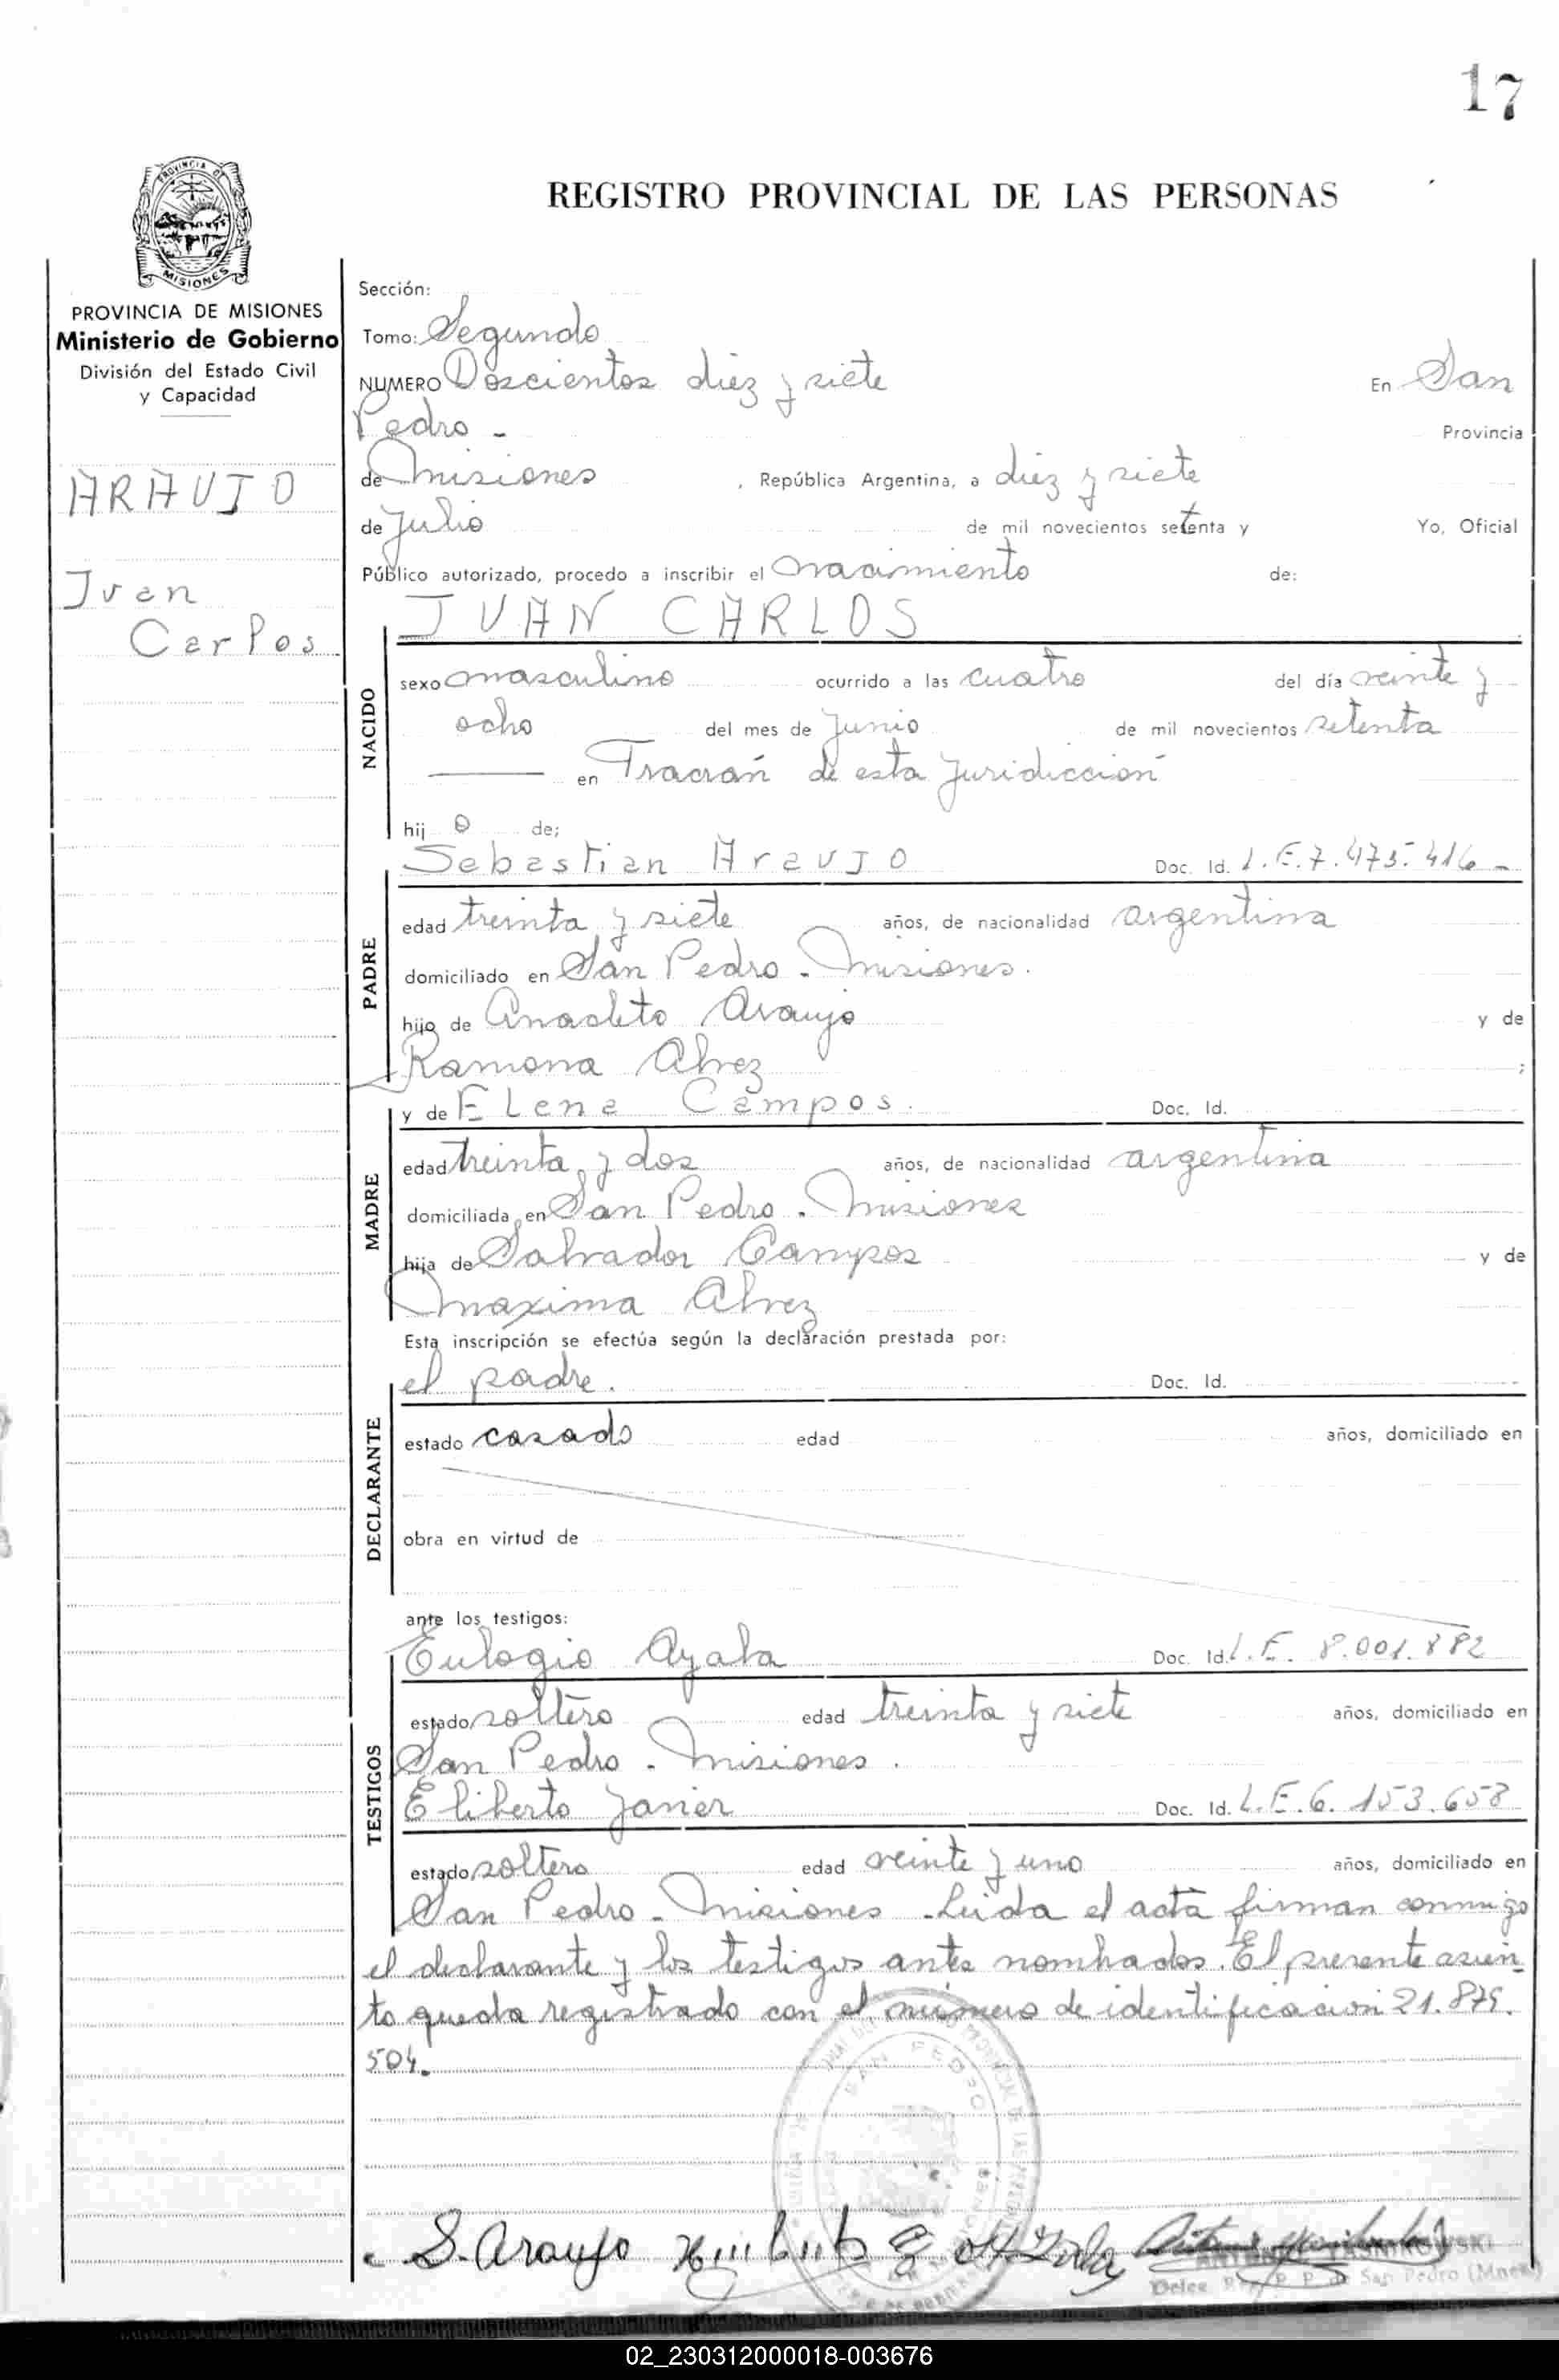 17
PROVINCIA DE
MISIONES
REGISTRO PROVINCIAL DE LAS PERSONAS
PROVINCIA DE MISIONES
Ministerio de Gobierno
División del Estado Civil
y Capacidad
ARAUJO
Juan
Carlos
Sección:
Tomo: Segundo
NUMERO Doscientos diez y siete En San
Pedro - Provincia
de Misiones , República Argentina, a diez y siete
de Julio de mil novecientos setenta y Yo, Oficial
Público autorizado, procedo a inscribir el nacimiento de:
JUAN CARLOS
NACIDO
sexo masculino ocurrido a las cuatro del día veinte y
ocho del mes de Junio de mil novecientos setenta
en Fracrán de esta Juridicción
hij o de;
Sebastian Araujo Doc. Id. L.E.7.475.416-
PADRE
edad treinta y siete años, de nacionalidad argentina
domiciliado en San Pedro - Misiones.
hijo de Anacleto Araujo y de
Ramona Alvez ;
y de Elena Campos. Doc. Id.
MADRE
edad treinta y dos años, de nacionalidad argentina
domiciliada en San Pedro - Misiones
hija de Salvador Campos y de
Maxima Alvez
Esta inscripción se efectúa según la declaración prestada por:
el padre. Doc. Id.
DECLARANTE
estado casado edad años, domiciliado en
obra en virtud de
ante los testigos:
Eulogio Ayala Doc. Id. L.E. 8.001.882
TESTIGOS
estado soltero edad treinta y siete años, domiciliado en
San Pedro - Misiones.
Eliberto Javier Doc. Id. L.E.6.153.658
estado soltero edad veinte y uno años, domiciliado en
San Pedro - Misiones - Leida el acta firman conmigo
el declarante y los testigos antes nombrados. El presente asien_
to queda registrado con el número de identificación 21.875.
504.
SAN PEDRO
S. Araujo
Deleg. R. P. P. de San Pedro (Mnes)
02_230312000018-003676